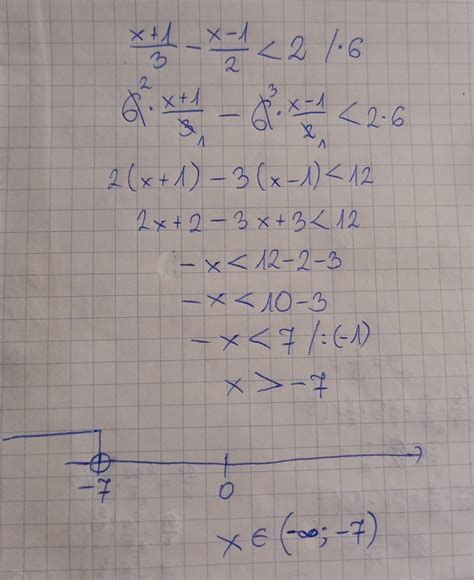 x+1/3 - x-1/2 < 2 /·6
6² · x+1/3₁ - 6³ · x-1/2₁ < 2·6
2(x+1) - 3(x-1) < 12
2x+2-3x+3 < 12
-x < 12-2-3
-x < 10-3
-x < 7 /:(-1)
x > -7
-7 0
x ∈ (-∞; -7)